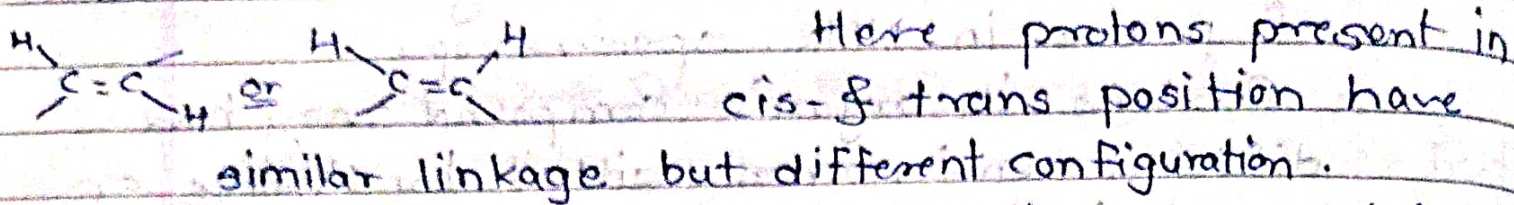 H H H Here protons present in
C=C or C=C cis- & trans position have
H
similar linkage but different configuration.